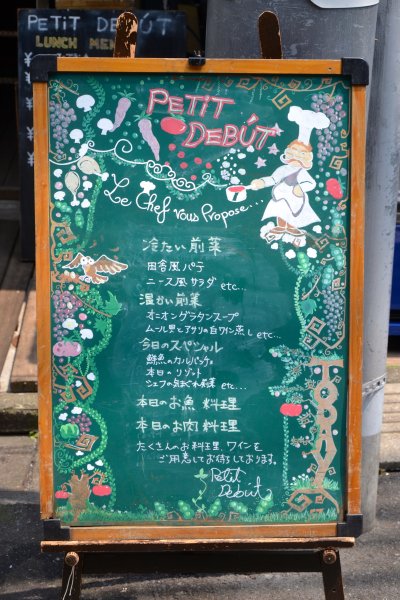 PETIT DEBÚT
LUNCH MEN
PETIT
DEBÚT
Le Chef vous Propose...
冷たい前菜
田舎風パテ
ニース風サラダ etc...
温かい前菜
オニオングラタンスープ
ムール貝とアサリの白ワイン蒸し etc...
今日のスペシャル
鮮魚のカルパッチョ
本日のリゾット
シェフの気まぐれ前菜 etc...
本日のお魚料理
本日のお肉料理
たくさんのお料理、ワインを
ご用意してお待ちしております。
Petit
Debut